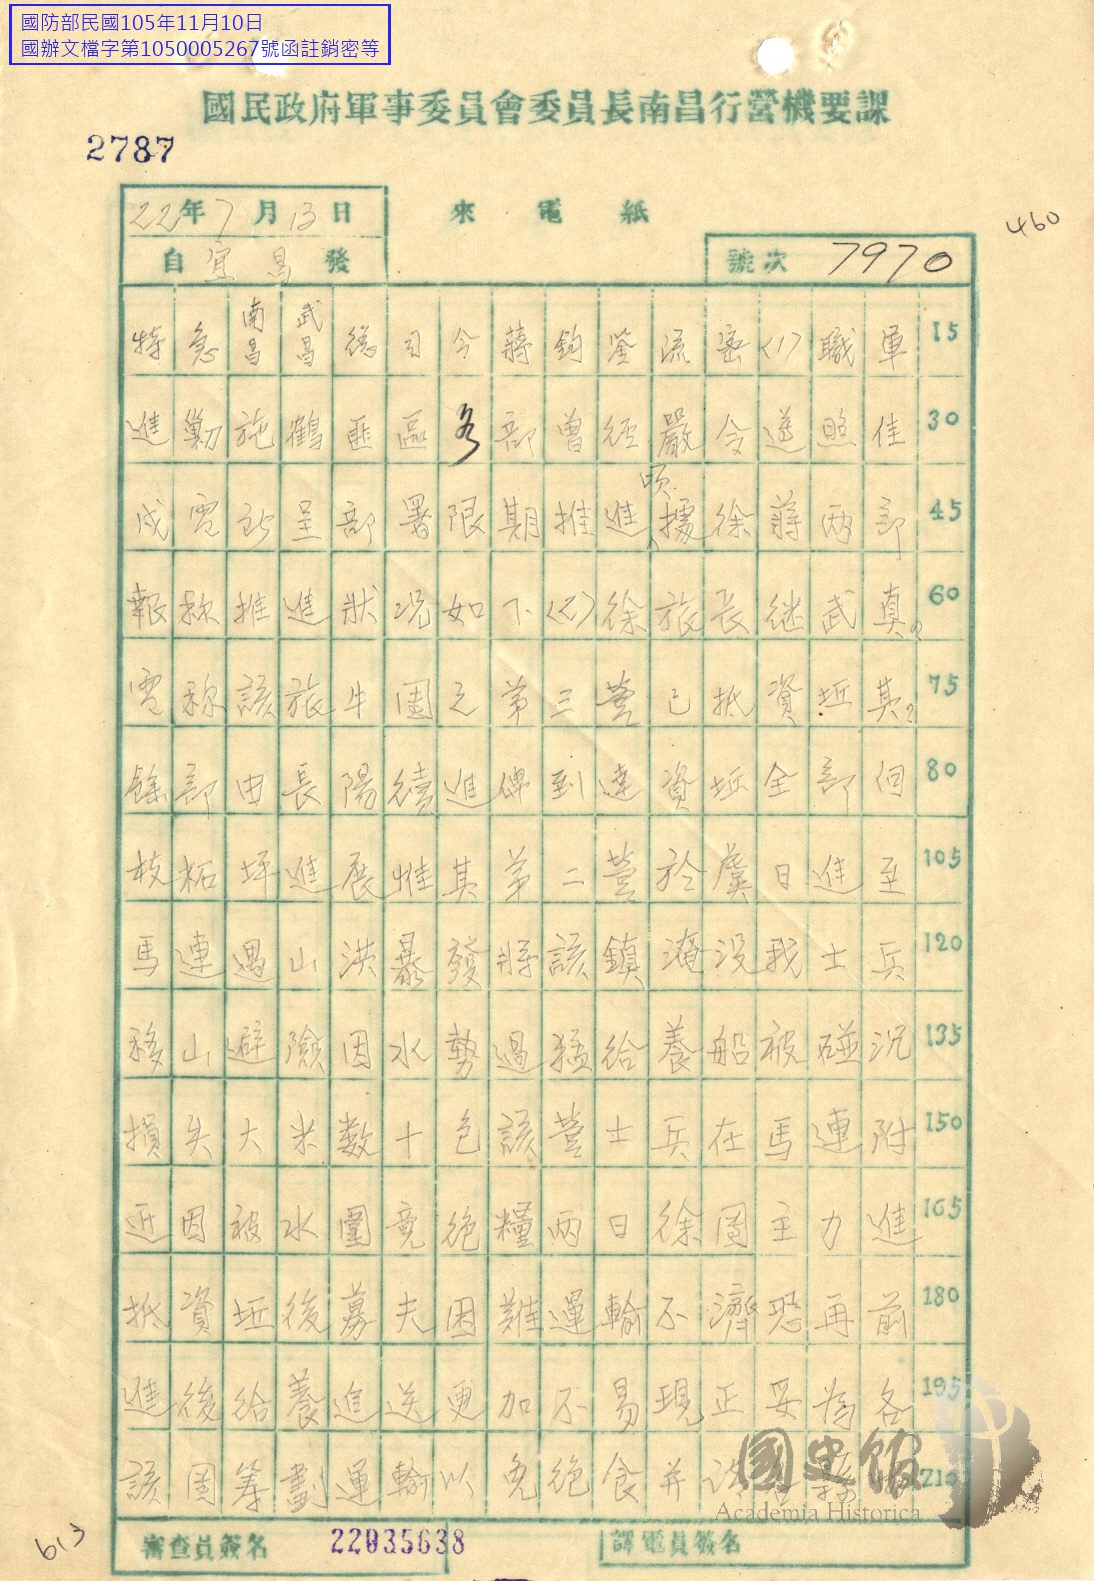 國防部民國105年11月10日
國辦文檔字第1050005267號函註銷密等
國民政府軍事委員會委員長南昌行營機要課
2787
22年7月13日
來電紙
460
自宜昌發
號次 7970
特急南昌武昌總司令蔣鈞鑒流密(1)職軍 15
進勦施鶴匪區各部曾經嚴令遵照佳 30
戌電所呈部署限期推進頃據徐蔣兩部 45
報稱推進狀況如下(2)徐旅長繼武真 60
電稱該旅牛團之第三營已抵資坵其 75
餘部由長陽續進俾到達資坵全部向 80
枝柘坪進展惟其第二營於虞日進至 105
馬連遇山洪暴發將該鎮淹没我士兵 120
移山避險因水勢過猛給養船被碰沉 135
損失大米數十包該營士兵在馬連附 150
近因被水圍竟絕糧兩日徐團主力進 165
抵資坵後募夫困難運輸不濟恐再前 180
進後給養追送更加不易現正妥為各 195
該團籌劃運輸以免絕食并 210
國史館
Academia Historica
審查員簽名
22035638
譯電員簽名
613